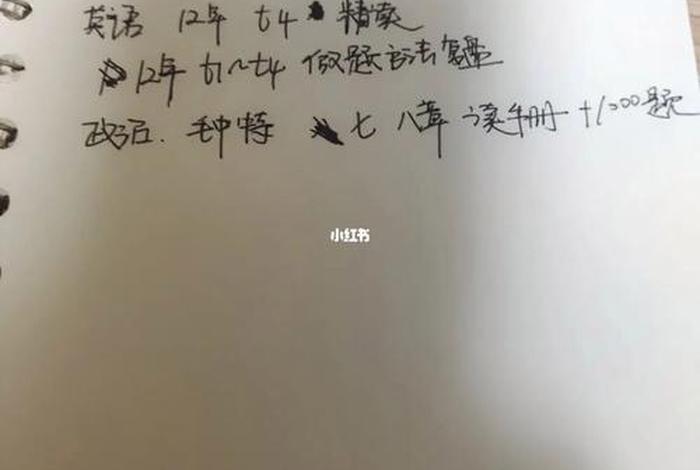 英语 12年 t4 精读
12年 t1~t4 做题方法复盘
政治. 毛中特 七 八章 读手册 +1000题
小红书